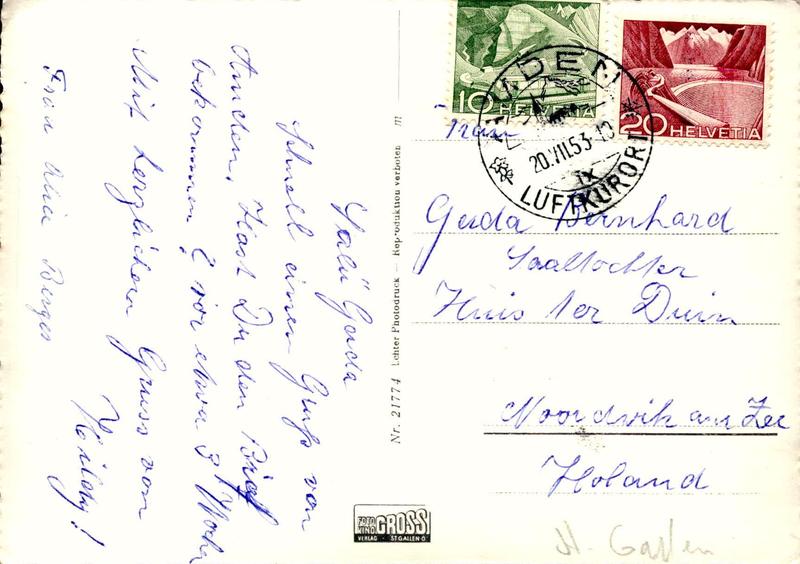 Salü Gerda
schnell einen Gruß von
Amden. Hast Du den Brief
bekommen? vor etwa 3 Woche
Mit herzlichem Gruss von
Heildy!
Frau
10 HELVETIA
20 HELVETIA
AMDEN
20.VII.53-10
IX
LUFTKURORT
Gerda Bernhard
Saaltochter
Huis ter Duin
Noordwik am Zee
Holand
Nr. 21774 Echter Photodruck — Reproduktion verboten m
FOTO KINO GROSS
VERLAG · ST GALLEN O
St. Gallen